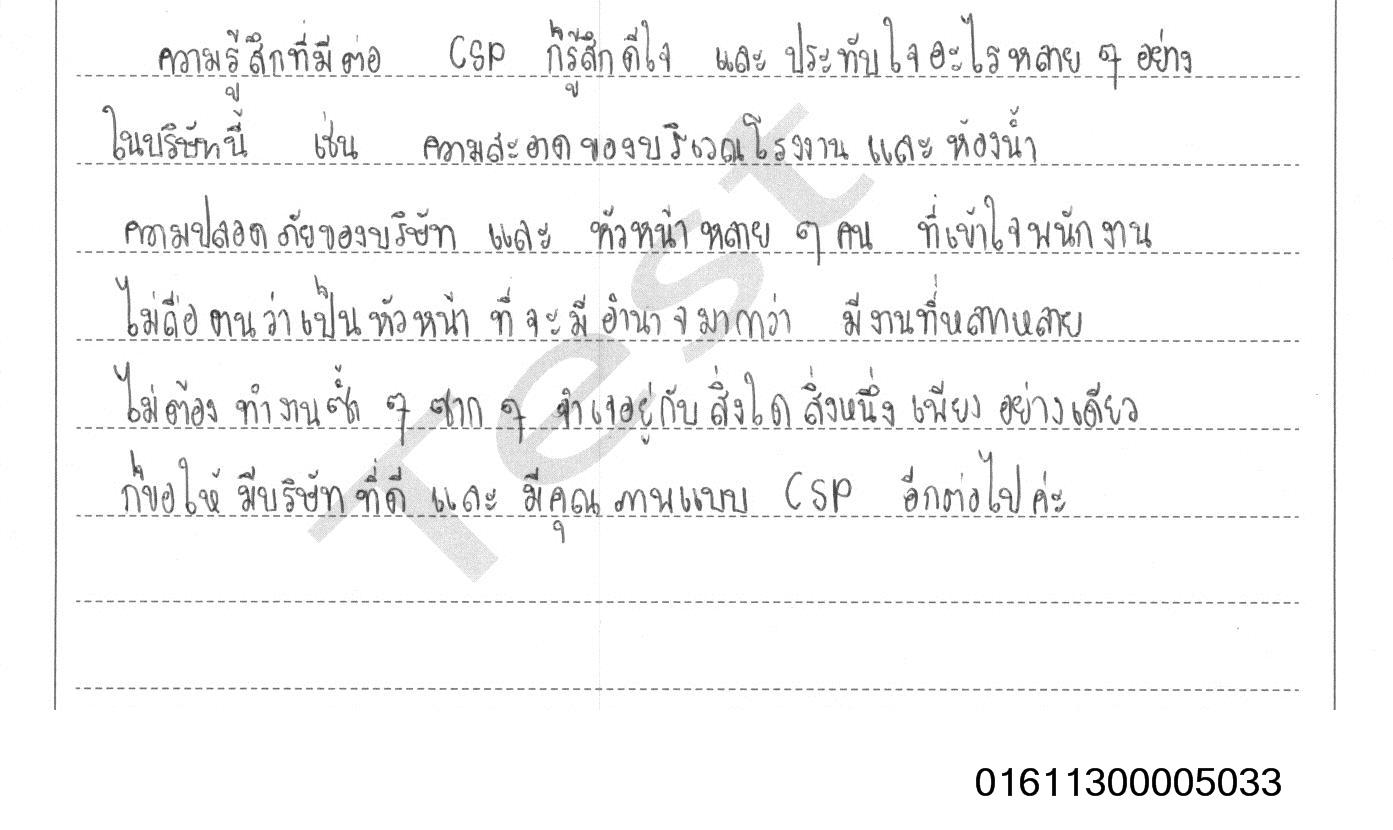 ความรู้สึกที่มีต่อ CSP ก็รู้สึกดีใจ และ ประทับใจอะไรหลาย ๆ อย่าง
ในบริษัทนี้ เช่น ความสะอาดของบริเวณโรงงาน และ ห้องน้ำ
ความปลอดภัยของบริษัท และ หัวหน้าหลาย ๆ คน ที่เข้าใจพนักงาน
ไม่ถือตนว่าเป็นหัวหน้า ที่จะมีอำนาจมากกว่า มีงานที่หลากหลาย
ไม่ต้อง ทำงานซ้ำ ๆ ซาก ๆ จำเจอยู่กับสิ่งใดสิ่งหนึ่ง เพียงอย่างเดียว
ก็ขอให้ มีบริษัทที่ดี และ มีคุณภาพแบบ CSP อีกต่อไปค่ะ
Test
01611300005033